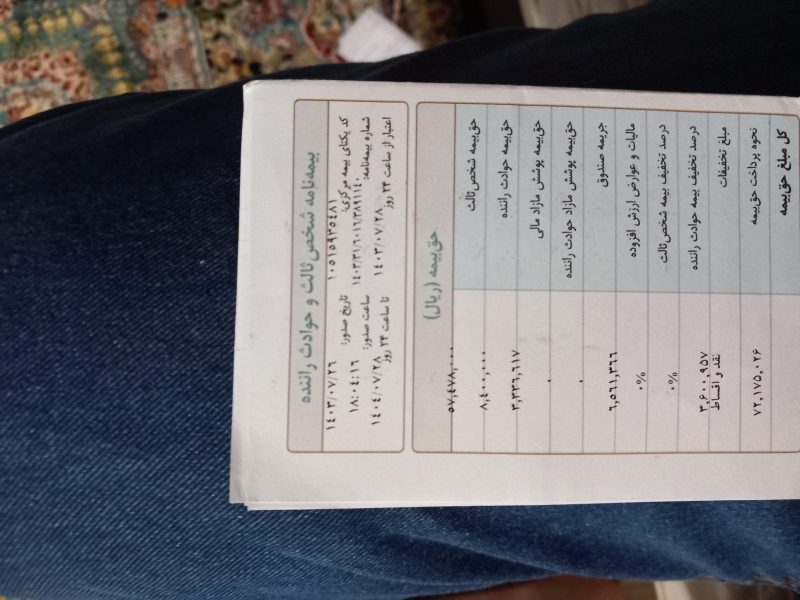 بیمه‌نامه شخص ثالث و حوادث راننده
کد یکتای بیمه مرکزی: ۱۰۵۱۵۹۳۵۴۸۱ تاریخ صدور: ۱۴۰۳/۰۷/۲۶
شماره بیمه‌نامه: ۱۴۰۳/۳۱/۶۰۱۶/۳۸۹۱۱۴۰ ساعت صدور: ۱۸:۰۴:۱۶
اعتبار از ساعت ۲۴ روز ۱۴۰۳/۰۷/۲۸ تا ساعت ۲۴ روز ۱۴۰۴/۰۷/۲۸
حق‌بیمه (ریال)
حق‌بیمه شخص ثالث ۵۷,۴۷۸,۰۰۰
حق‌بیمه حوادث راننده ۸,۴۰۰,۰۰۰
حق‌بیمه پوشش مازاد مالی ۳,۳۳۶,۶۱۷
حق‌بیمه پوشش مازاد حوادث راننده ۰
جریمه صندوق ۰
مالیات و عوارض ارزش افزوده ۶,۵۶۱,۳۶۶
درصد تخفیف بیمه شخص ثالث ۰%
درصد تخفیف بیمه حوادث راننده ۰%
مبلغ تخفیفات ۳,۶۰۰,۹۵۷
نحوه پرداخت حق‌بیمه نقد و اقساط
کل مبلغ حق‌بیمه ۷۲,۱۷۵,۰۲۶